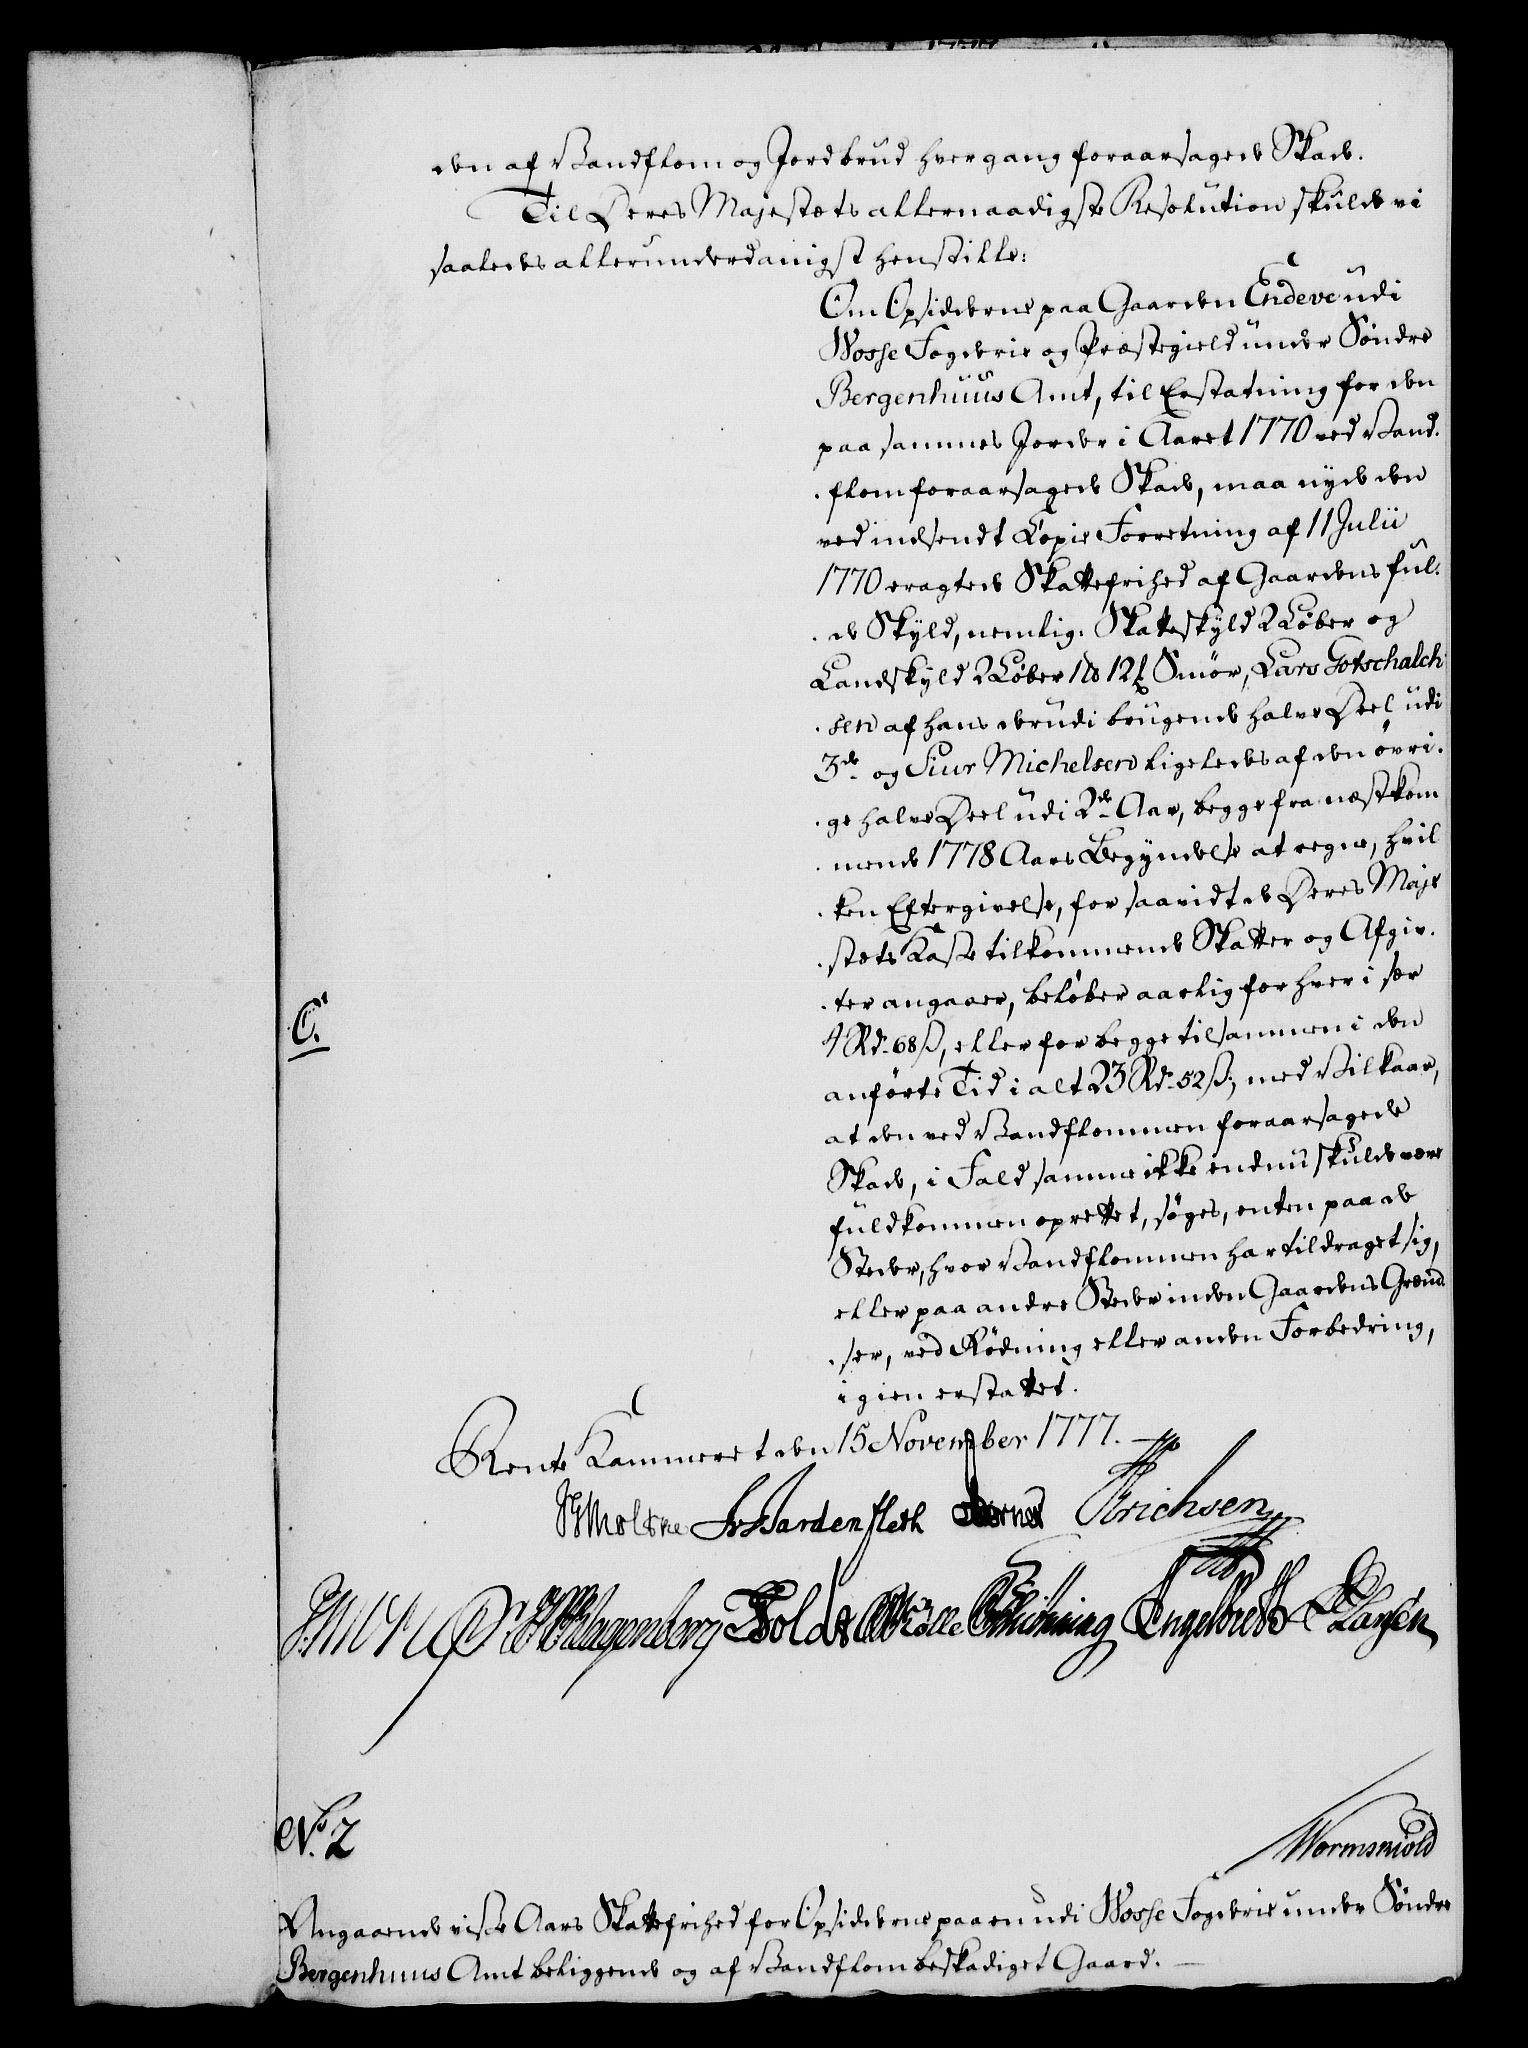 den af Vandflom og Jordbrud hver gang foraarsagede Skade.
Til Deres Majestæts allernaadigste Resolution skulde vi
saaledes allerunderdanigst henstille:
Om Opsidderne paa Gaarden Endeve udi
Wosse Fogderie og Præstegield under Søndre
Bergenhuus Amt, til Erstatning for den
paa sammes Jorder i Aaret 1770 ved Vand-
flom foraarsagede Skade, maa nyde den
ved indsendt Copie Forretning af 11 Julii
1770 eragtede Skattefrihed af Gaardens ful-
de Skyld, nemlig: Skatteskyld 2 Løber og
Landskyld 2 Løber 1 ℔ 12 ℔ Smør, Lars Gotschalch-
sen af hans derudi brugende halve Deel udi
3de og Siur Michelsen ligeledes af den øvri-
ge halve Deel udi 2de Aar, begge fra næstkom-
mende 1778 Aars Begyndelse at regne, hvil-
ken Eftergivelse, for saavidt de Deres Maje-
stæts Kasse tilkommende Skatter og Afgiv-
ter angaaer, beløber aarlig for hver i sær
4 Rd. 68 ß, eller for begge tilsammen i den
anførte Tid i alt 23 Rd. 52 ß; med Vilkaar,
at den ved Vandflommen foraarsagede
Skade, i Fald samme ikke endnu skulde være
fuldkommen oprettet, søges, enten paa de
Steder, hvor Vandflommen har tildraget sig,
eller paa andre Steder inden Gaardens Grænd-
ser, ved Rødning eller anden Forbedring,
igien erstattet.
C.
Rente Kammeret den 15 November 1777.
Moltke Bardenfleth Erichsen
Klagenberg Holdt Engelbreth Clausen
No. 2
Wormskiold
Angaaende visse Aars Skattefrihed for Opsidderne paa en udi Wosse Fogderie under Søndre
Bergenhuus Amt beliggende og af Vandflom beskadiget Gaard.